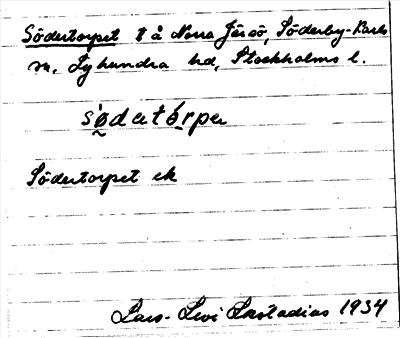 Södertorpet t å Norra Järsö, Söderby-Karls
sn, Lyhundra hd, Stockholms l.
södertórpe
Södertorpet ek
Lars-Levi Læstadius 1934